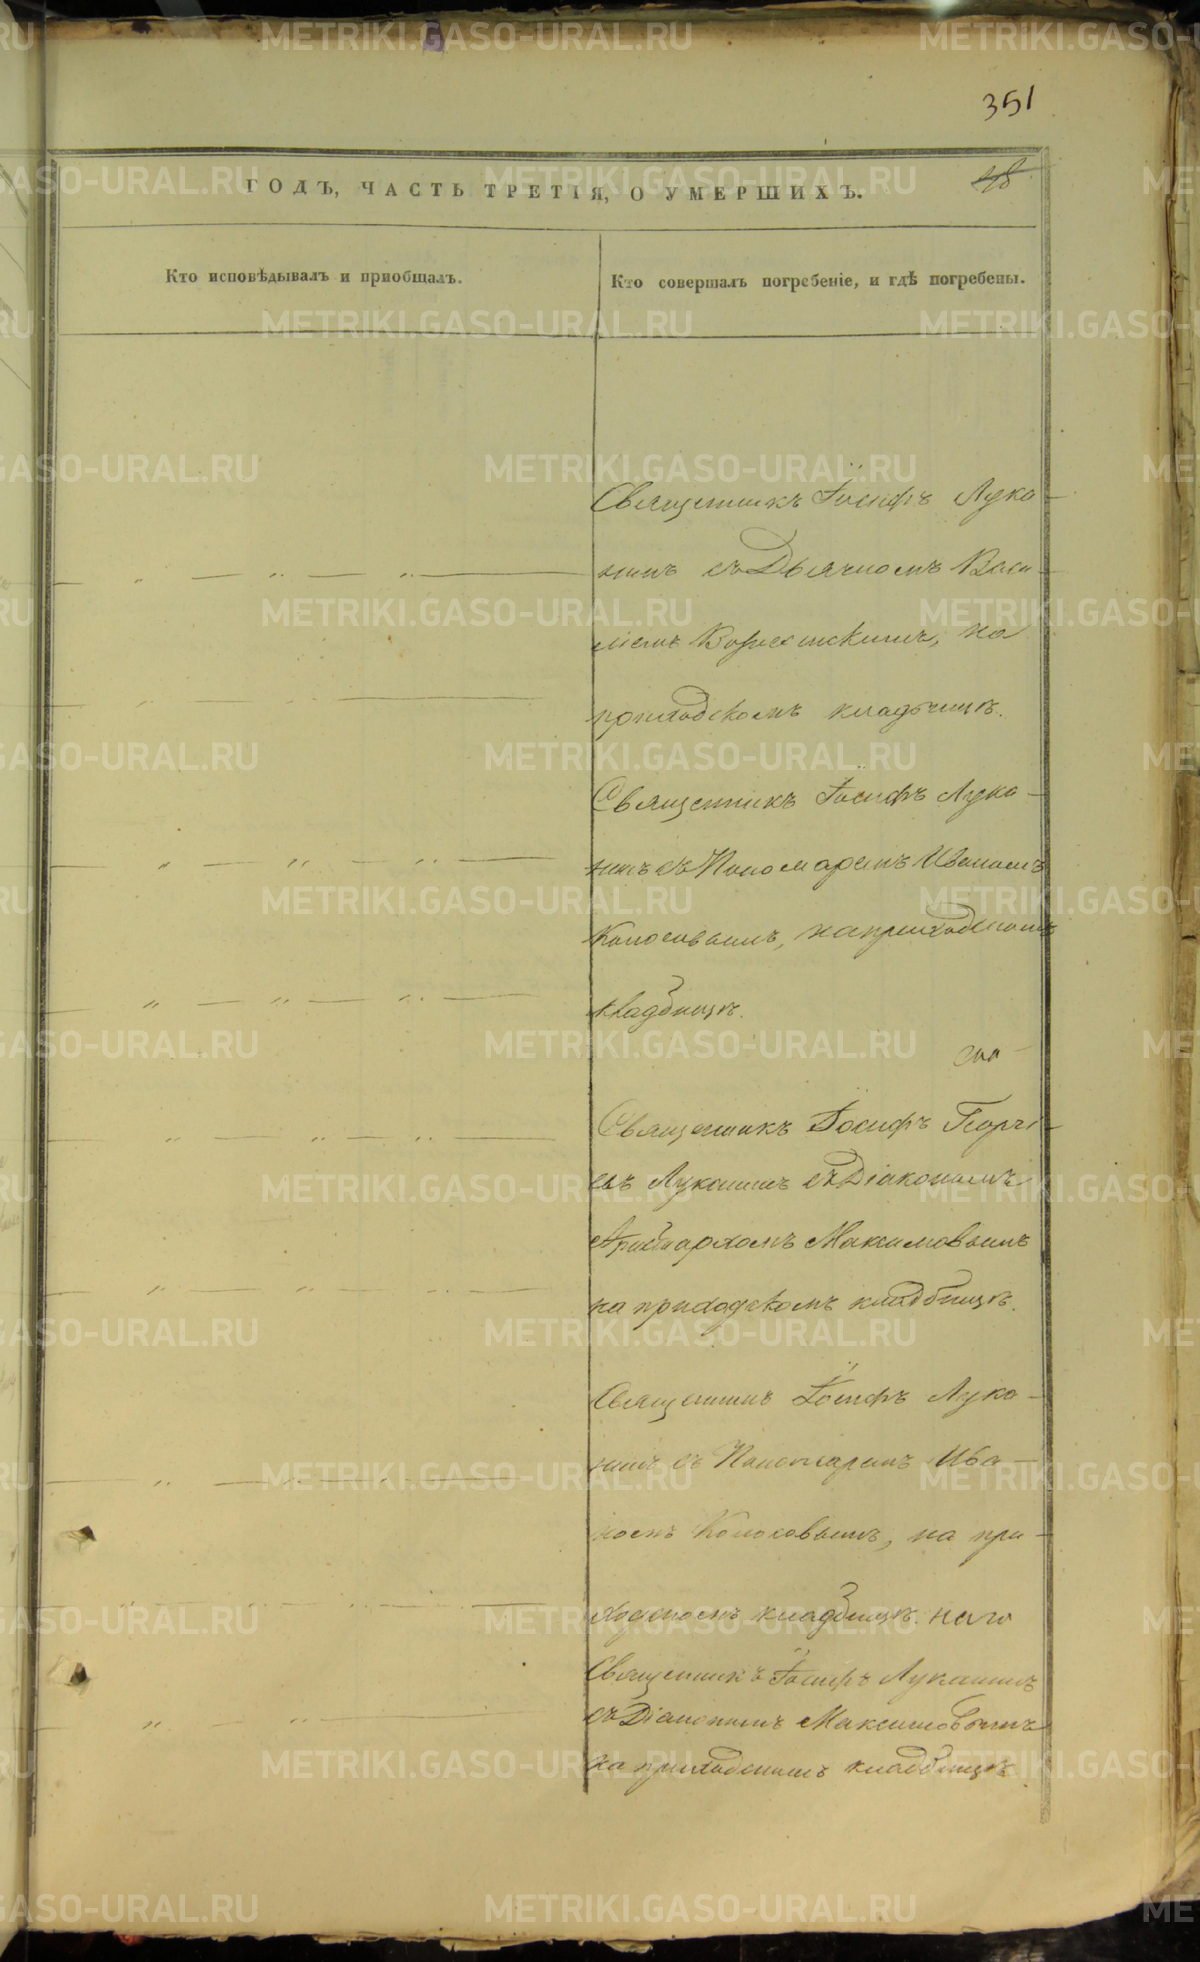 351
ГОДЪ, ЧАСТЬ ТРЕТІЯ, О УМЕРШИХЪ.
48
Кто исповѣдывалъ и пріобщалъ.
Кто совершалъ погребеніе, и гдѣ погребены.
Священникъ Іосифъ Лука-
нинъ съ Дьячкомъ Васи-
ліемъ на
приходскомъ кладбищѣ.
Священникъ Іосифъ Лука-
нинъ съ Пономаремъ Иваномъ
Колосовымъ, на приходскомъ
кладбищѣ.
Священникъ Іосифъ Георгі-
евъ Луканинъ съ Діакономъ
Аристархомъ Максимовымъ
на приходскомъ кладбищѣ.
Священникъ Іосифъ Лука-
нинъ съ Пономаремъ Ива-
номъ Колосовымъ, на при-
ходскомъ кладбищѣ.
Священникъ Іосифъ Луканинъ
съ Діакономъ Максимовымъ
на приходскомъ кладбищѣ
METRIKI.GASO-URAL.RU